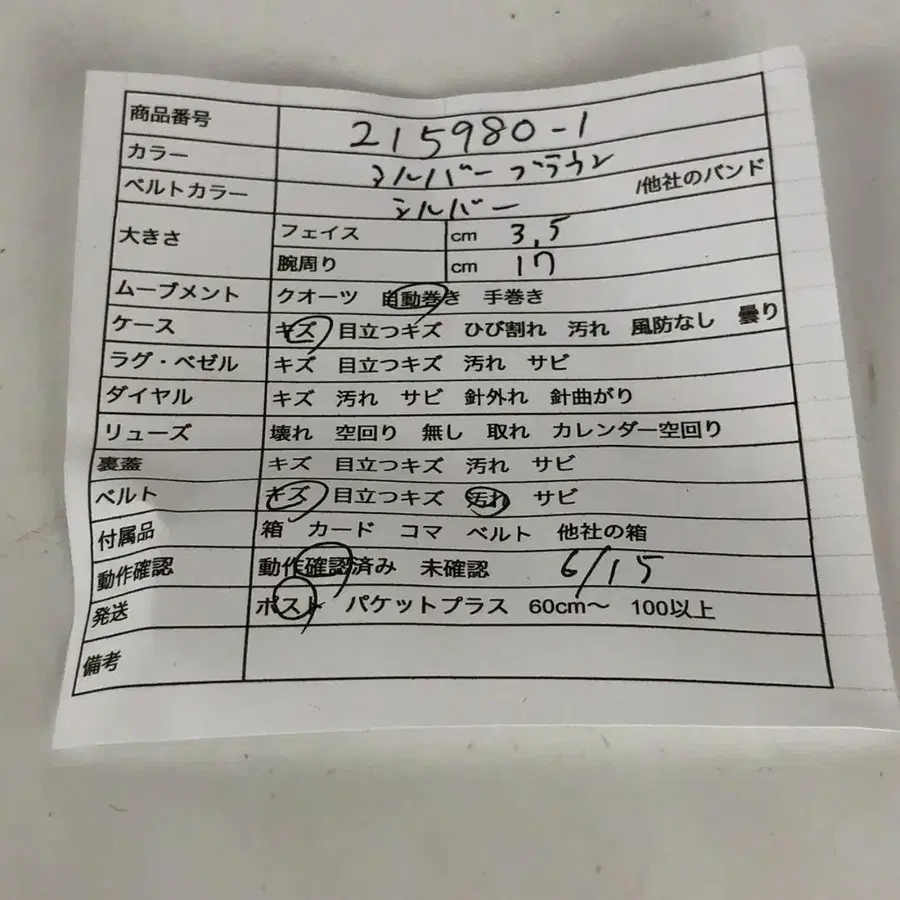 商品番号 215980-1
カラー シルバー ブラウン
ベルトカラー シルバー /他社のバンド
大きさ フェイス cm 3.5
腕周り cm 17
ムーブメント クオーツ 自動巻き 手巻き
ケース キズ 目立つキズ ひび割れ 汚れ 風防なし 曇り
ラグ・ベゼル キズ 目立つキズ 汚れ サビ
ダイヤル キズ 汚れ サビ 針外れ 針曲がり
リューズ 壊れ 空回り 無し 取れ カレンダー空回り
裏蓋 キズ 目立つキズ 汚れ サビ
ベルト キズ 目立つキズ 汚れ サビ
付属品 箱 カード コマ ベルト 他社の箱
動作確認 動作確認済み 未確認 6/15
発送 ポスト パケットプラス 60cm〜 100以上
備考